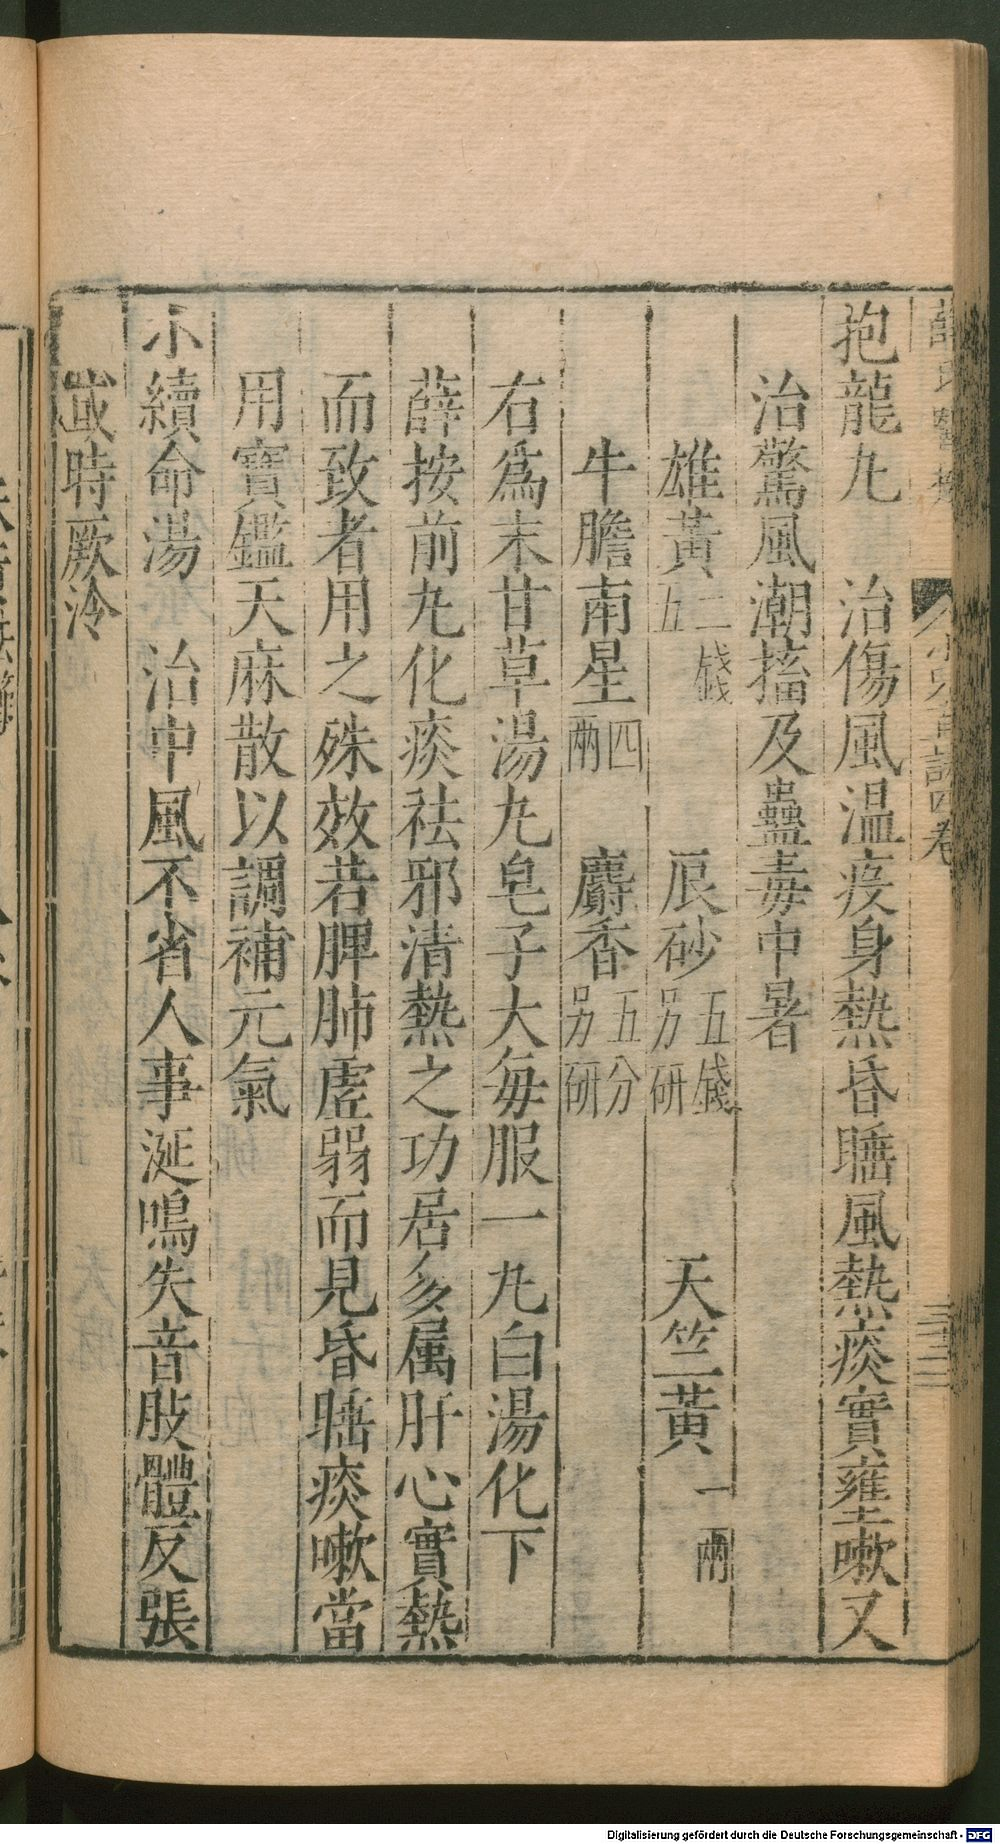 抱龍丸　治傷風溫疫身熱昏睡風熱痰實壅嗽又
治驚風潮搐及蠱毒中暑
雄黃二錢五　辰砂五錢另研　天竺黃一兩
牛膽南星四兩　麝香五分另研
右爲末甘草湯丸皂子大每服一丸白湯化下
薛按前丸化痰祛邪清熱之功居多屬肝心實熱
而致者用之殊效若脾肺虛弱而見昏睡痰嗽當
用寶鑑天麻散以調補元氣
小續命湯　治中風不省人事涎鳴失音肢體反張
或時厥冷
Digitalisierung gefördert durch die Deutsche Forschungsgemeinschaft - DFG